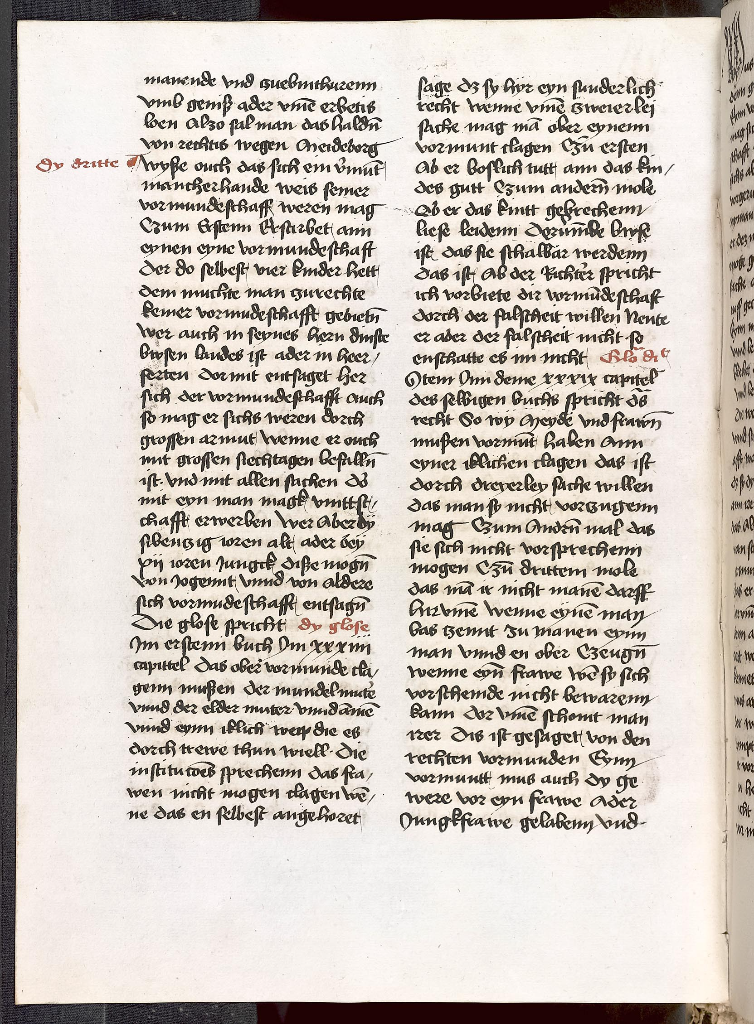 manende vnd zuebinthurenn
vmb geniß ader vm̄e erbetis
lven Alzo sal man das haldn̄
von rechtis wegen Meideborg
dy dritte
Wyße ouch das sich ein v̄mūt
mancherhande weis seiner
vormundeschafft weren mag
Czum Erstenn Erstirbet ann
eynen eyne vormundeschafft
Der do selbest vier kinder hett
dem muchte man zurechte
keiner vormundeschafft gebietn̄
wer auch in seynes hern dinste
bwsen landes ist ader in heer/
ferten Dormit entsaget her
sich der vormundeschafft Auch
so mag er sichs weren dorch
grossen armut wenne er ouch
mit grossen siechtagen befalln̄
ist vnd mit allen sachen Do
mit eyn man magk vnttst/
chafft erwerben Wer Aber by
sibenczig ioren alt ader bey
xii ioren Jungck diße mogn̄
von Jogennt vnnd von Aldere
sich vormudeschafft entsagn̄
Die glose spricht dy glose
Jm erstenn buch Jm xxxiiii
capittel Das ober vormunde cla/
genn mußen Der mundel muter
vnnd der elder muter vnnd amme
vnnd eynn iklich weip die es
dorch trewe thun wiell Die
institutoēs sprechenn das fra/
wen nicht mogen clagen wē/
ne das en selbest angehoret
sage dz sy hyr eyn sunderlich
recht wenne vm̄e zweierlei
sache mag mā ober eynenn
vormunt clagen Czu ersten
Ab er boslich tutt ann das kin/
des gutt Czum andern̄ mole
Ab er das kintt gebrechenn
liese leidenn Derūmbe bwse
ist das sie schalbar werdenn
das ist Ab der Richter spricht
ich vorbiete dir vormūdeschaft
dorch der falscheit willen Neute
er ader der falscheit nicht so
enschatte es im nicht Glo die
Jtem Jnn deme xxxix capitel
des selbigen buchs spricht dis
recht So wy Meyde vnd frawn̄
mußen vormūt haben Ann
eyner iklichen clagen das ist
dorch dreyerley sache willen
das man sy nicht vorzugenn
mag Czum Andrn̄ mal das
sie sich nicht vorsprechenn
mogen Czū drittem mole
das mā ir nicht manē darff
hirvm̄e wenne eynē man
bas zemt zu manen eynn
man vnnd en ober Czeugn̄
wenne eyn̄ frawe wē sy sich
vorscheide nicht bewarenn
kann Dor vm̄e schonit man
irer Dis ist gesaget von den
rechten vormunden Eynn
vormuntt mus auch dy ge
were vor eyn frawe Ader
Jungkfrawe gelabenn vnd